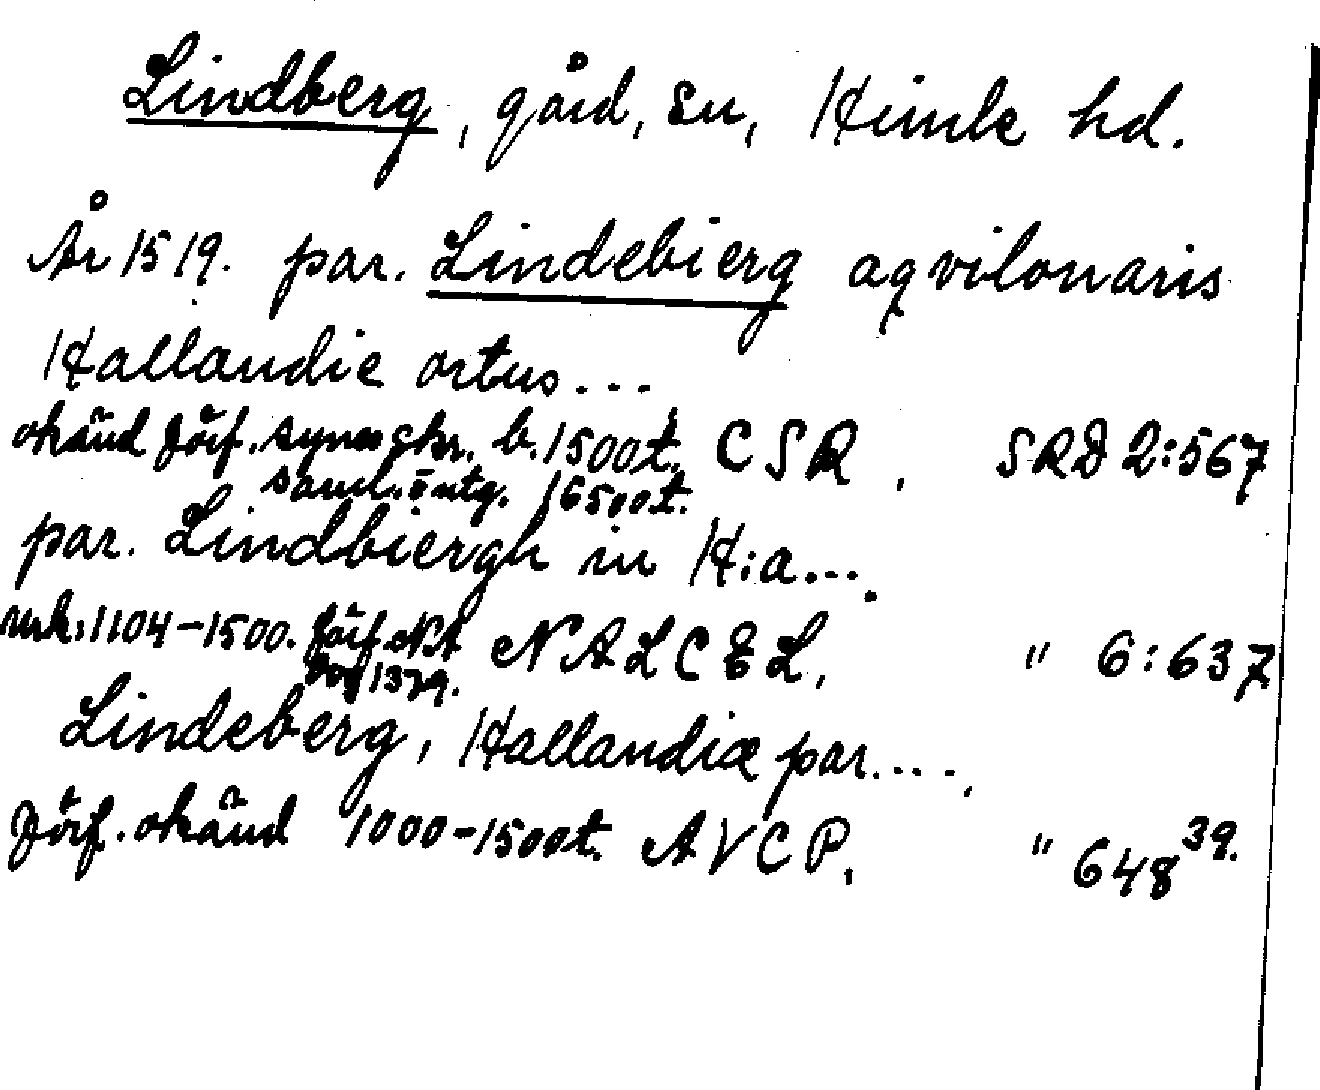 Lindberg, gård, sn, Himle hd.
År 1519. par. Lindebierg aqvilonaris
Hallandie ortus...
okänd förf. synes skr. b. 1500t. CSR, SRD 2:567
saml. 1650 0 t.
par. Lindbiergh in H:a...
1104-1500. förf. NA NALCEL, " 6:637
1379.
Lindeberg, Hallandiæ par....,
förf. okänd 1000-1500t. AVCP, " 648 39.